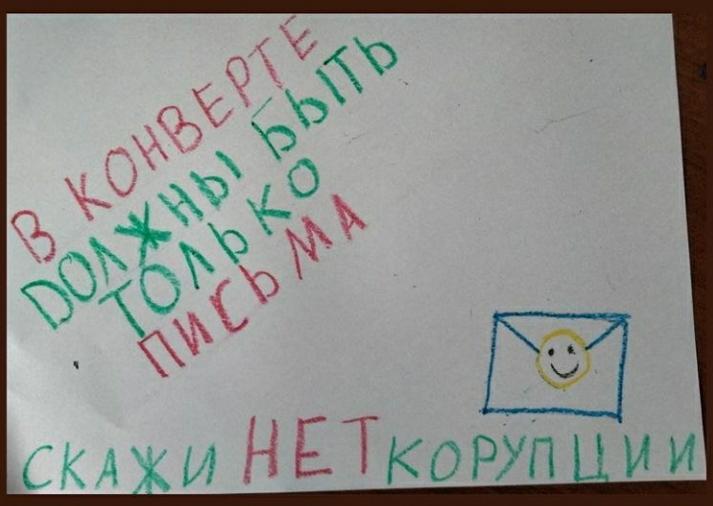 В КОНВЕРТЕ
ДОЛЖНЫ БЫТЬ
ТОЛЬКО
ПИСЬМА
СКАЖИ НЕТ КОРУПЦИИ